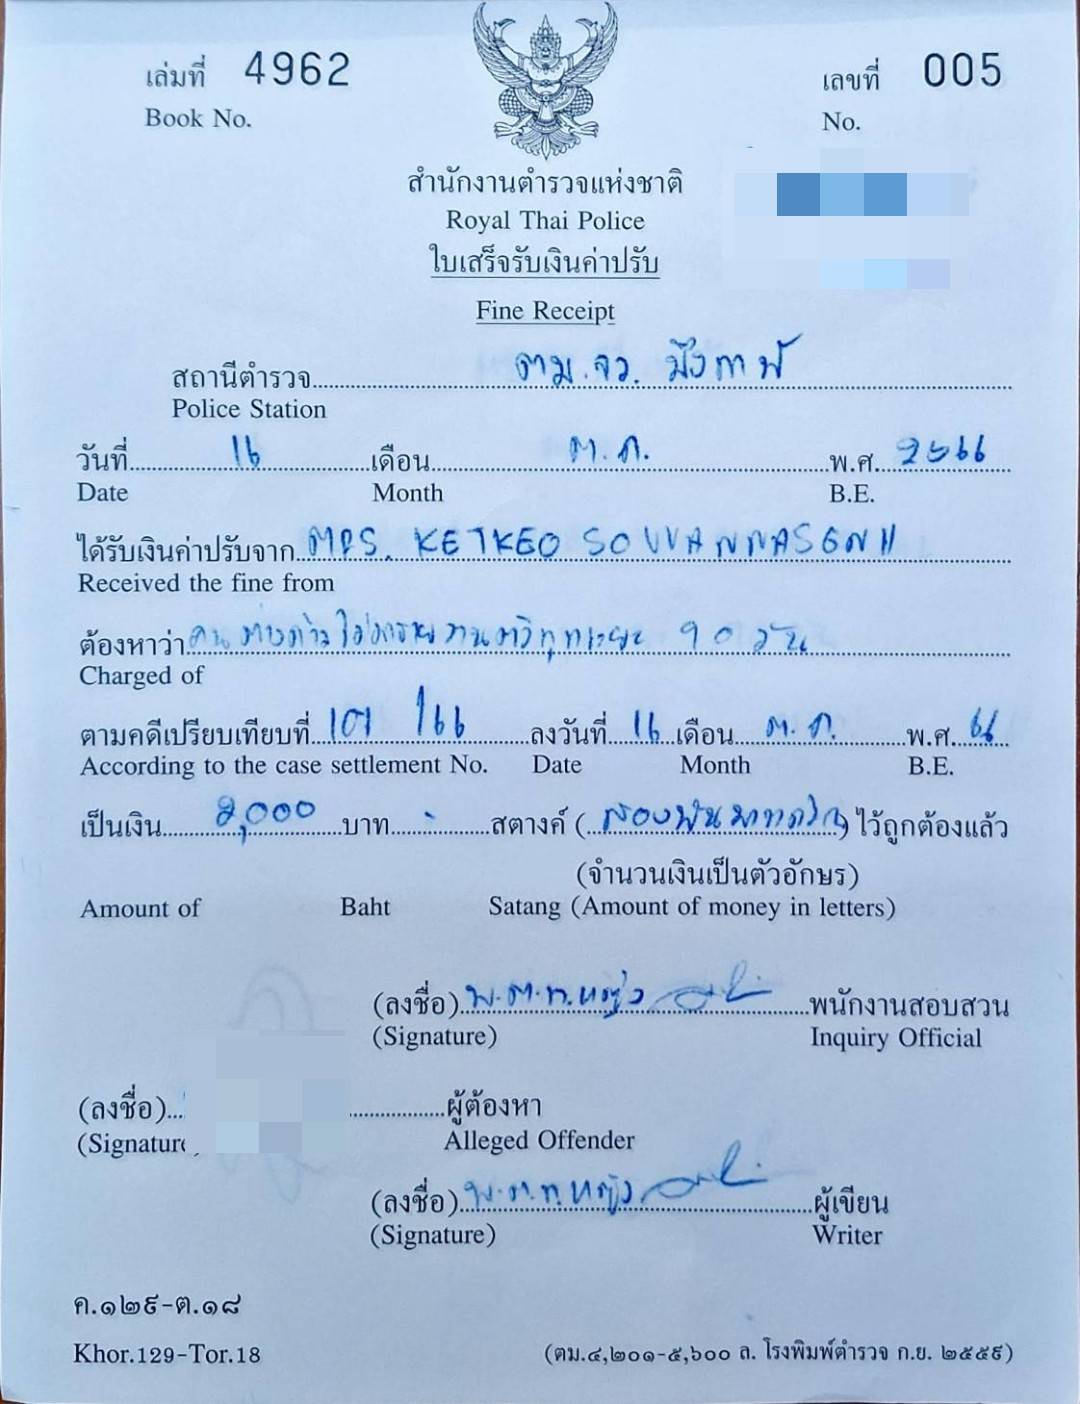 เล่มที่ 4962 เลขที่ 005
Book No. No.
สำนักงานตำรวจแห่งชาติ
Royal Thai Police
ใบเสร็จรับเงินค่าปรับ
Fine Receipt
สถานีตำรวจ ตม.จว. บึงกาฬ
Police Station
วันที่ 16 เดือน ต.ค. พ.ศ. 2566
Date Month B.E.
ได้รับเงินค่าปรับจาก MRS. KETKEO SOUVANNASENH
Received the fine from
ต้องหาว่า คนต่างด้าวไม่ 90 วัน
Charged of
ตามคดีเปรียบเทียบที่ 101/66 ลงวันที่ 16 เดือน ต.ค. พ.ศ. 66
According to the case settlement No. Date Month B.E.
เป็นเงิน 2,000 บาท - สตางค์ (สองพันบาทถ้วน) ไว้ถูกต้องแล้ว
(จำนวนเงินเป็นตัวอักษร)
Amount of Baht Satang (Amount of money in letters)
(ลงชื่อ) พ.ต.ท.หญิง พนักงานสอบสวน
(Signature) Inquiry Official
(ลงชื่อ) ผู้ต้องหา
(Signature Alleged Offender
(ลงชื่อ) พ.ต.ท.หญิง ผู้เขียน
(Signature) Writer
ค.๑๒๙-ต.๑๘
Khor.129-Tor.18 (ตม.๔,๒๐๑-๕,๖๐๐ ล. โรงพิมพ์ตำรวจ ก.ย. ๒๕๕๙)